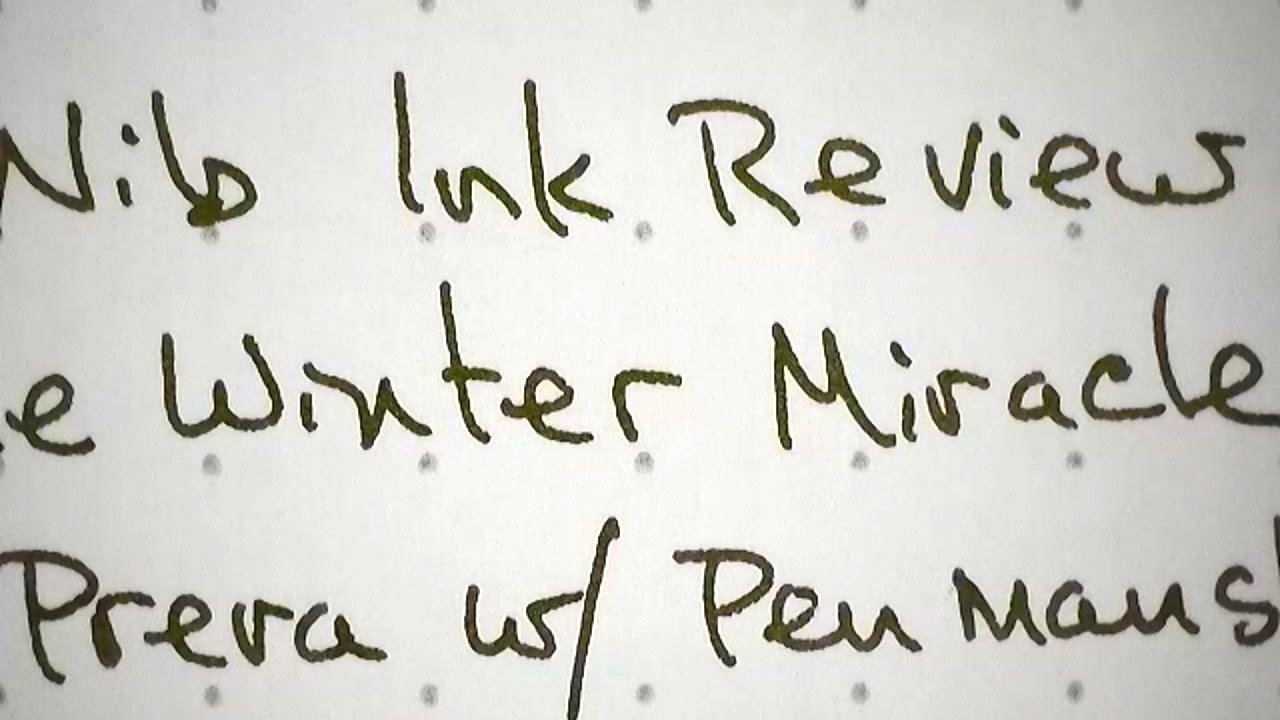 Nib Ink Review
e Winter Miracle
Prera w/ Penmans